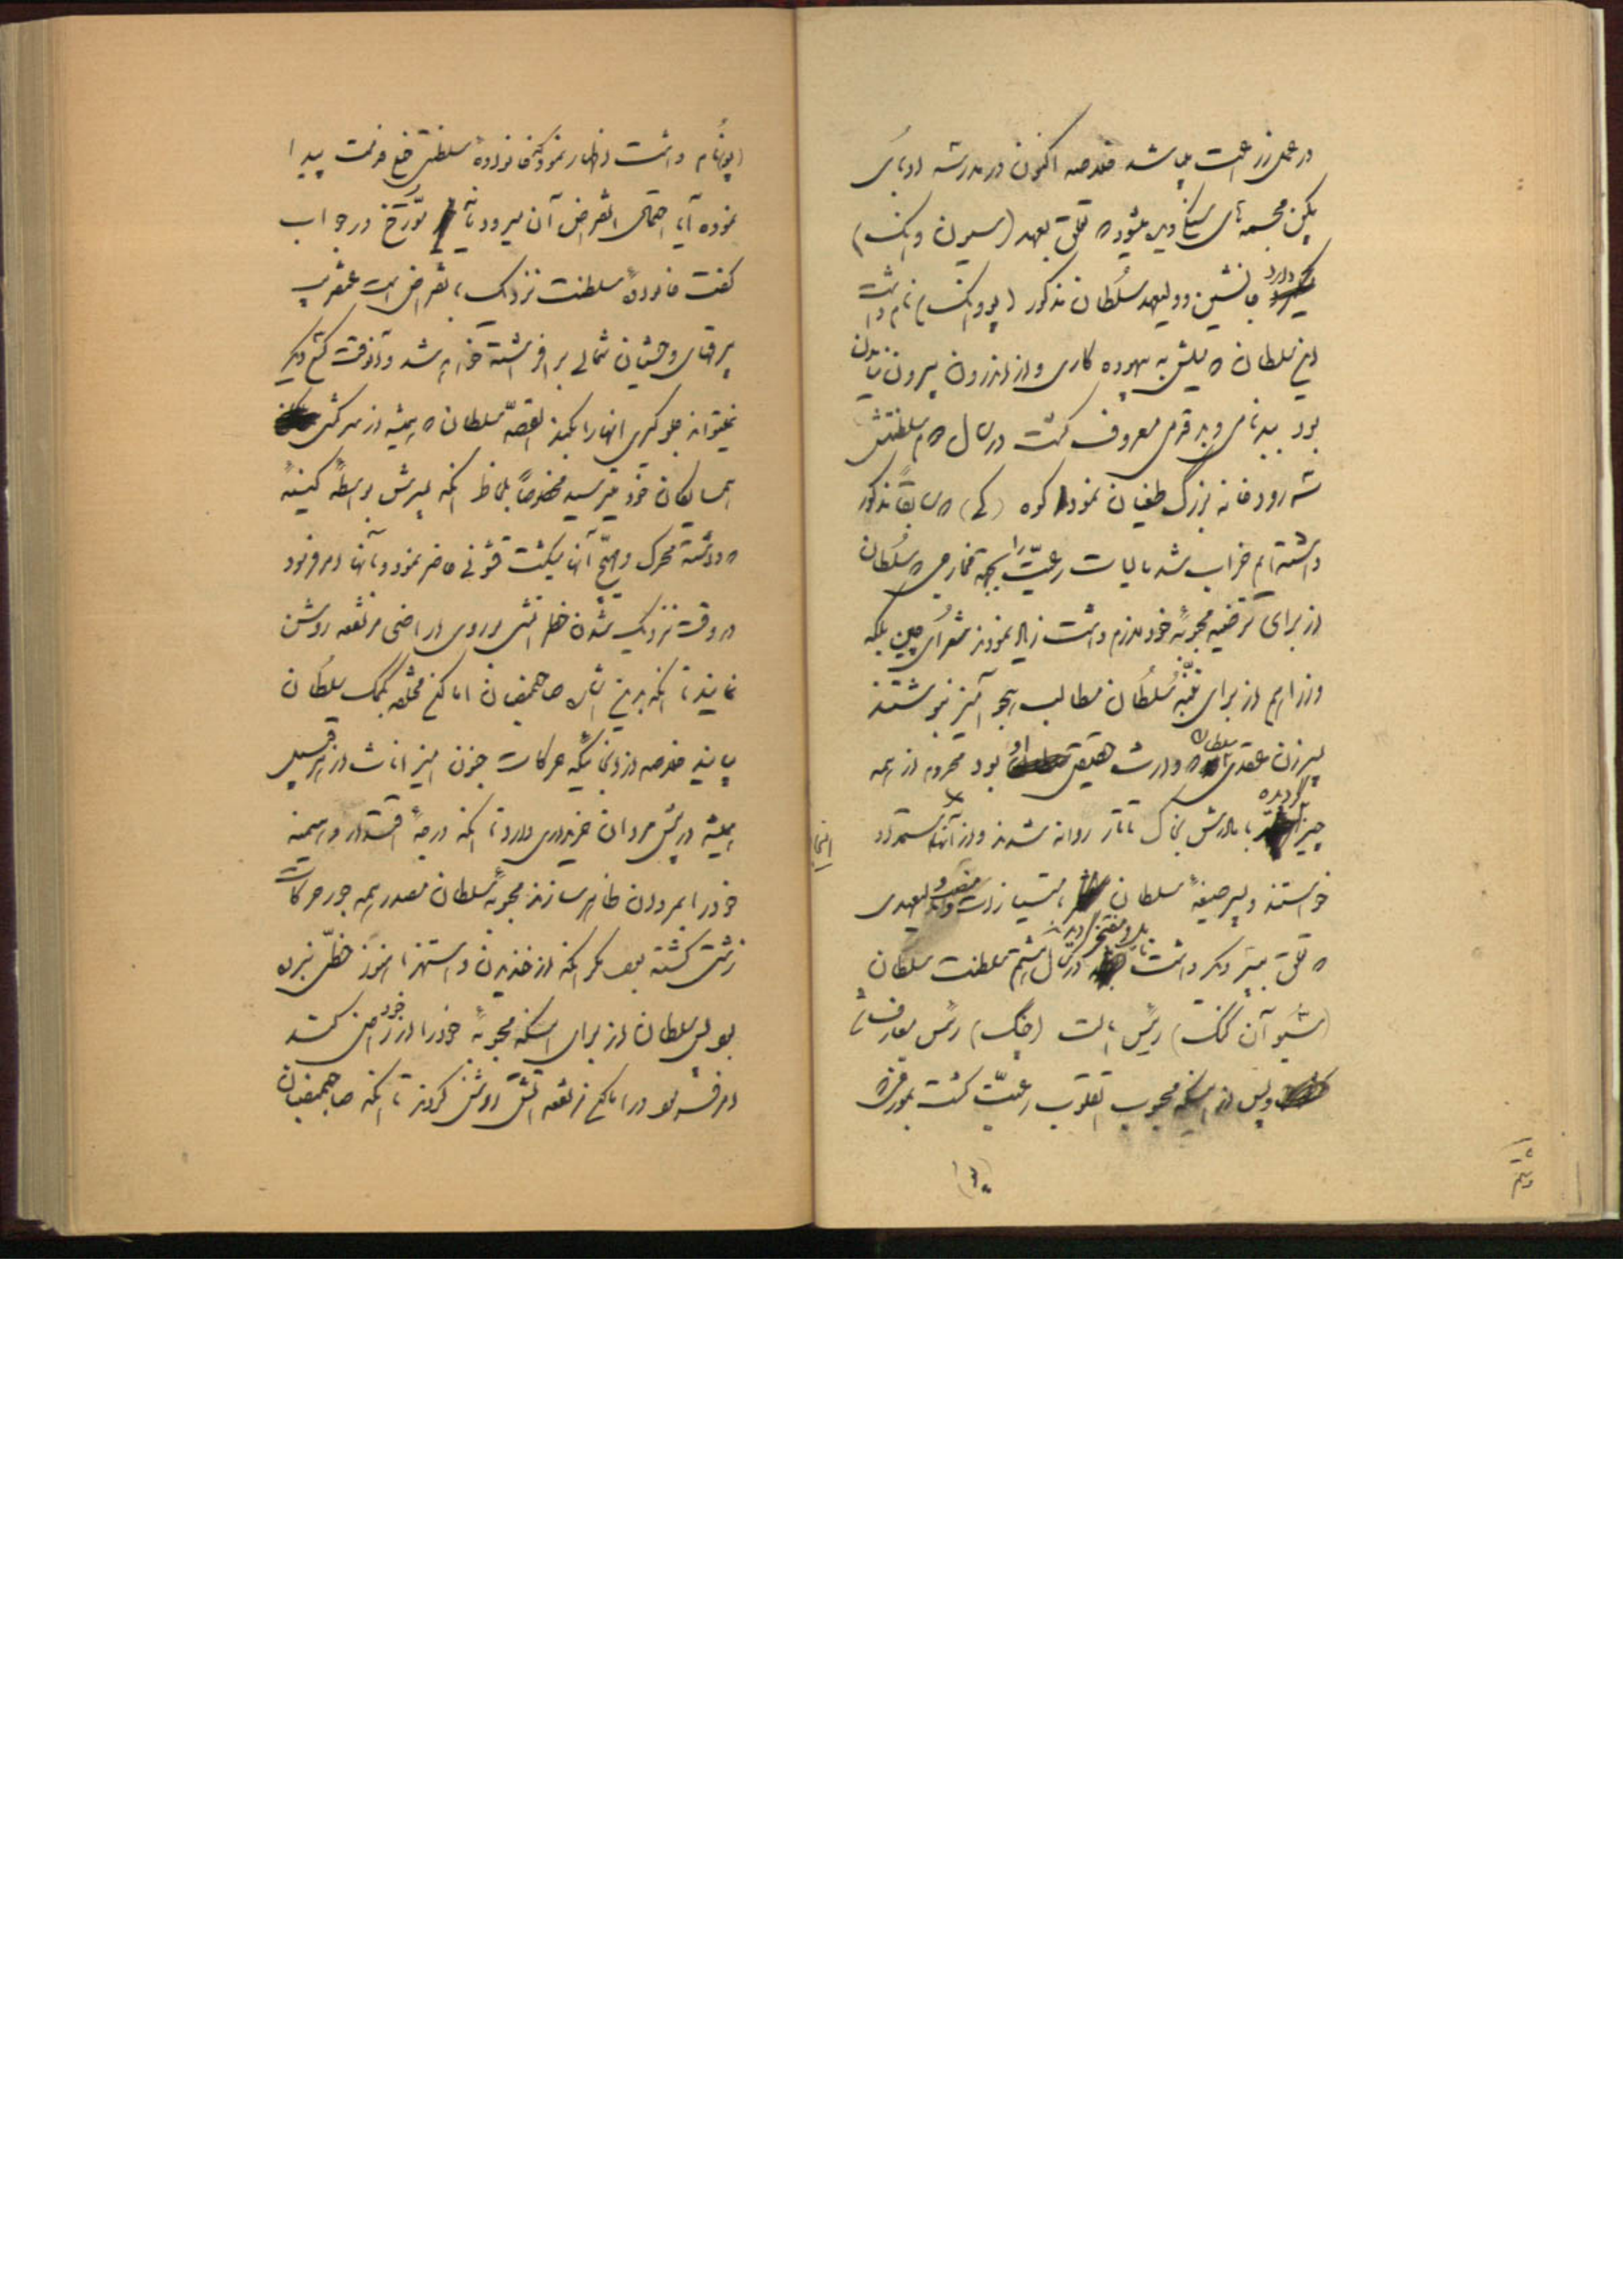 در عمل زراعت میباشد خلاصه اکنون در مدرسه ادبای
پکن مجسمه های سنگی دیده میشود که متعلق بعهد (سیون وانک)
دارد جانشین و ولیعهد سلطان مذکور (یو وانک) نام داشت
این سلطان که میلش به بیهوده کاری و از اندرون بیرون نیامدن
بود ببدنامی و بد قدمی معروف گشت در سال دوم سلطنتش
سه رودخانه بزرگ طغیان نمود کوه (کی) که سابقاً مذکور
داشته ایم خراب شد مالیات رعیّت را بجهة مخارجی که سلطان
از برای ترضیه محبوبهٔ خود لازم داشت زیاد نمودند شعرای چین بلکه
وزرا هم از برای تنبّه سلطان مطالب هجو آمیز نوشتند
پسر زن عقدی سلطان که وارث حقیقی او بود محروم از همه
چیز گردیده با مادرش بخاک تاتار روانه شدند و از آنها استمداد
خواستند و پسر صیغهٔ سلطان بامتیازات و لقب ولیعهدی
که تعلق به پسر دیگر داشت نایل و مفتخر گردید در سال هشتم سلطنت سلطان
(شیو آن کنک) رئیس ایالت (چنک) رئیس معارف شد
و پس از اینکه محبوب القلوب رعیّت گشت بمورخی که
(پوتام) داشت اظهار نمود که خانوادهٔ سلطنتی خیلی فرصت پیدا
نموده آیا احتمال انقراض آن میرود یا نه مورّخ در جواب
گفت خانوادهٔ سلطنت نزدیک بانقراض است عنقریب
بیرقهای وحشیان شمالی برافراشته خواهد شد و آنوقت کسی دیگر
نمیتواند جلوگیری آنها را بکند القصّه سلطان که همیشه از سرکشی
همسایگان خود میترسید مخصوصاً بلحاظ آنکه پسرش بواسطهٔ کینهٔ
که داشته محرک و مهیّج آنها میگشت قشونی حاضر نمود و بآنها امر فرمود
در وقت نزدیک شدن خطر آتشی بر روی اراضی مرتفعه روشن
نمایند تا آنکه بدین اشاره صاحبمنصبان اماکن مختلفه بکمک سلطان
بیایند خلاصه از آنجائیکه حرکات جنون آمیز اناث از هر قبیل
همیشه در پیش مردان خریداری دارد تا آنکه درجهٔ اقتدار و هیمنه
خود را بمردان ظاهر سازند محبوبهٔ سلطان مصدر همه جور حرکات
زشتی گشته بود مگر آنکه از خندیدن و استهزا هنوز حظّی نبرده
بود پس سلطان از برای اینکه محبوبهٔ خود را از خود راضی کند
امر فرموده بود در اماکن مرتفعه آتش روشن کردند تا آنکه صاحبمنصبان